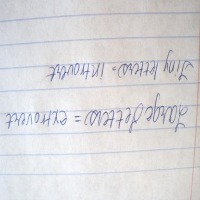 Large letters = extrovert
Tiny letters = introvert